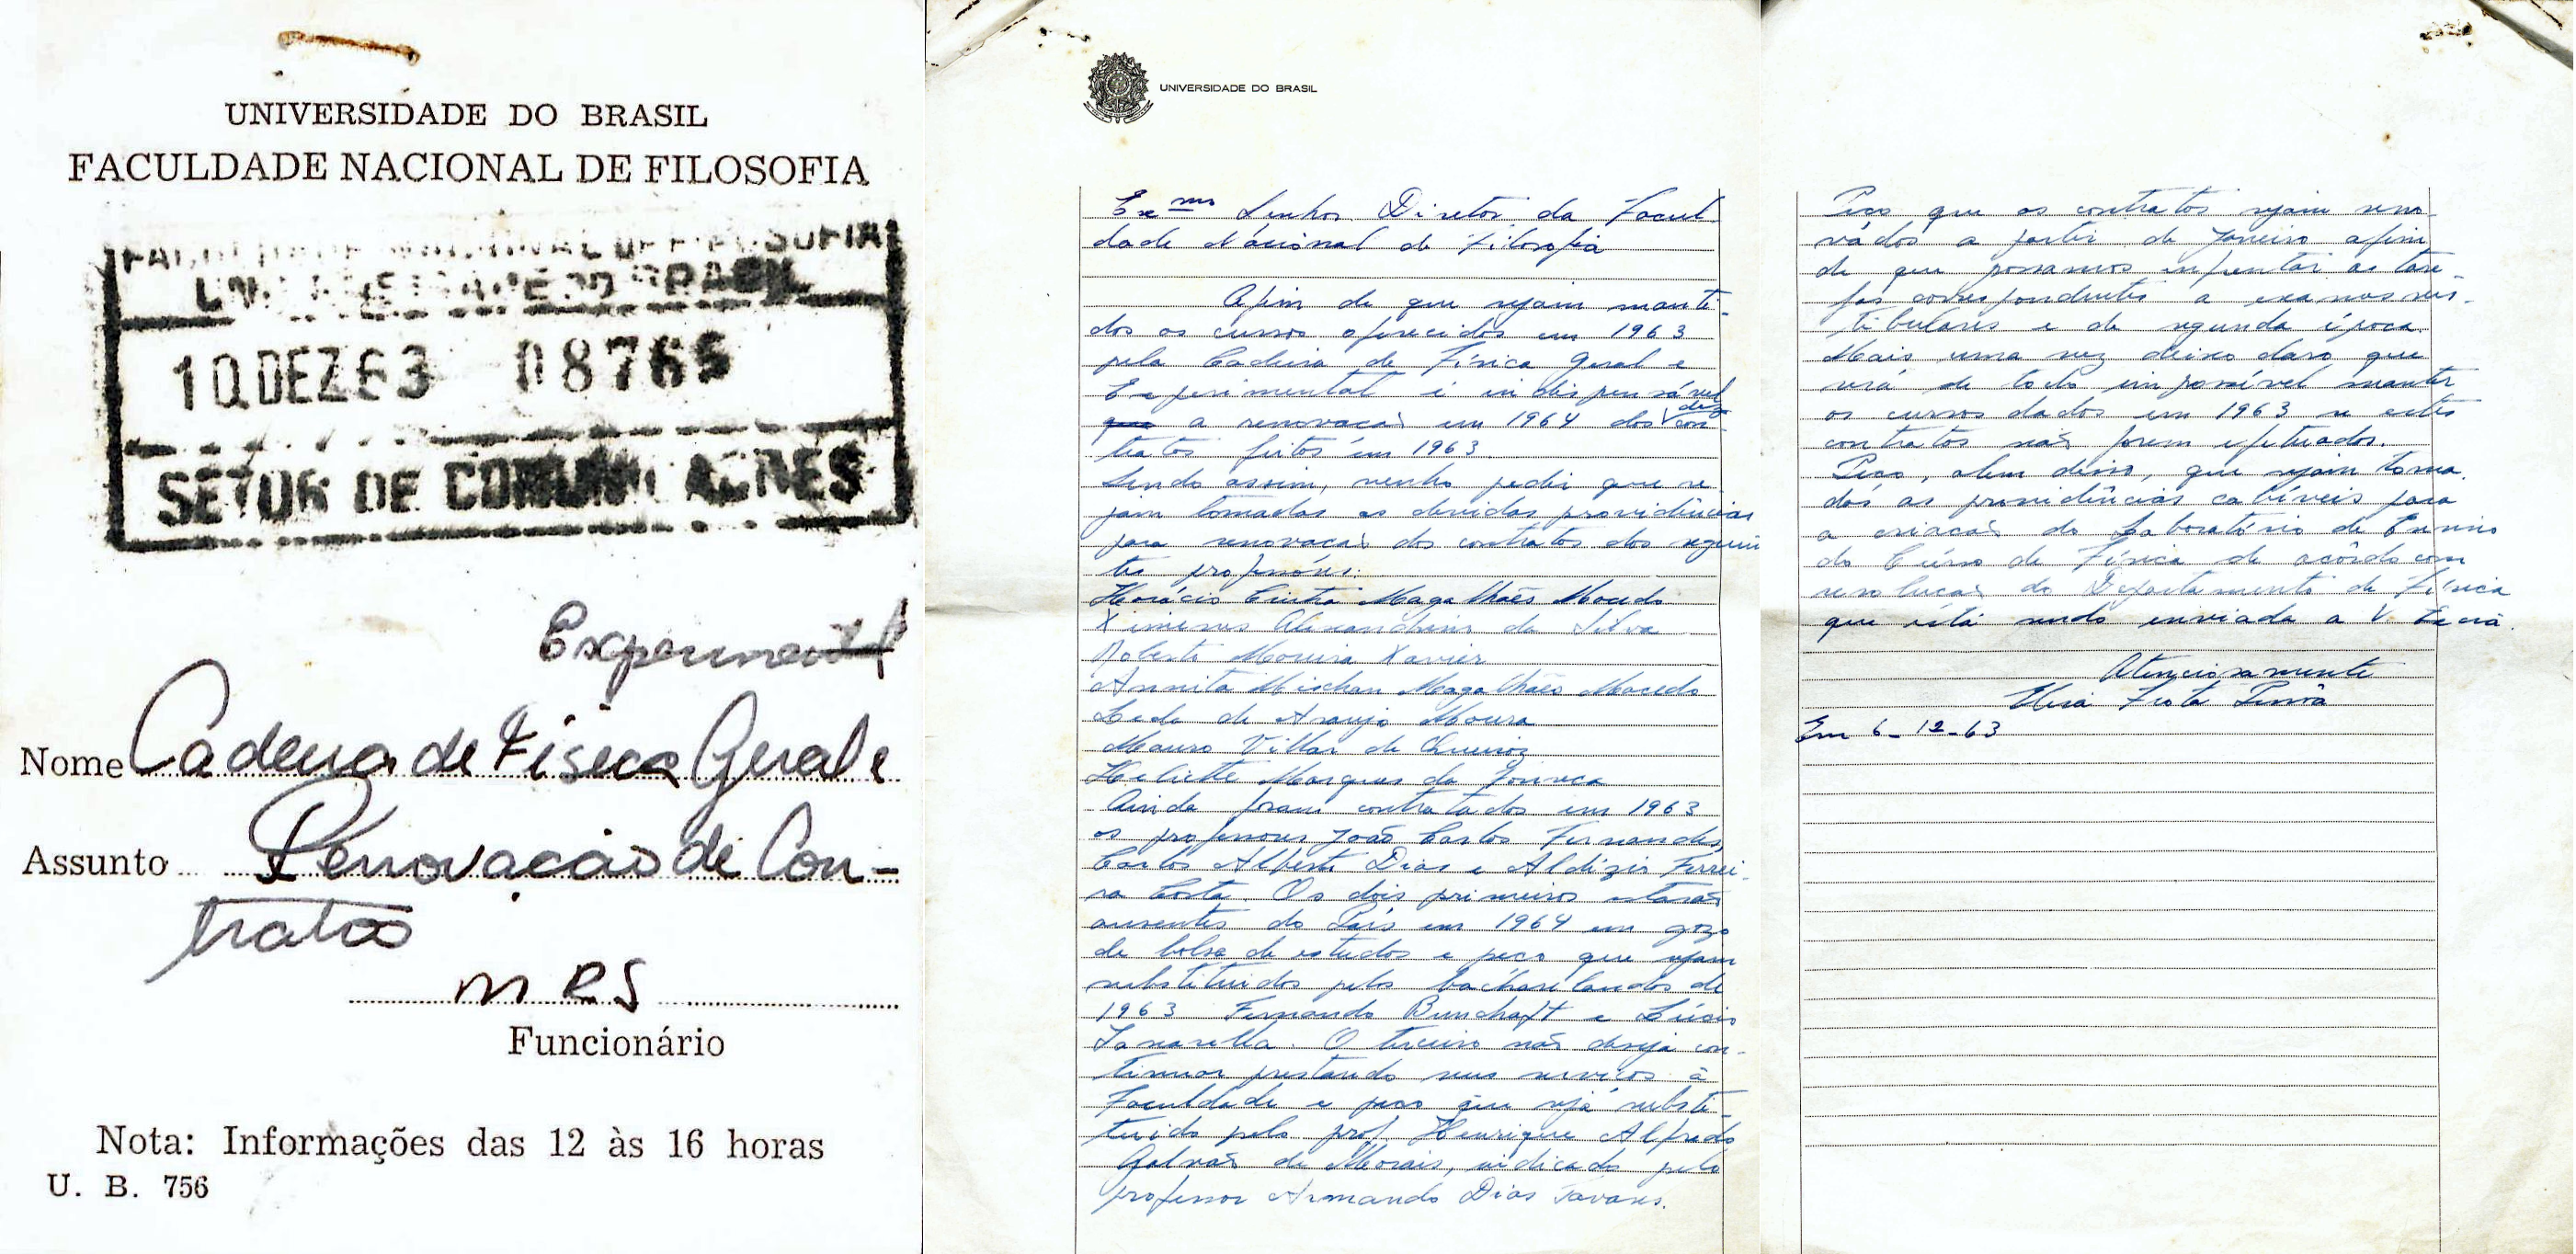 UNIVERSIDADE DO BRASIL
FACULDADE NACIONAL DE FILOSOFIA
FACULDADE NACIONAL DE FILOSOFIA
UNIVERSIDADE DO BRASIL
10 DEZ 63 08765
SETOR DE COMUNICAÇÕES
Experimental
Nome Cadeira de Física Geral e
Assunto Renovação de Con-
tratos
MRS
Funcionário
Nota: Informações das 12 às 16 horas
U. B. 756
UNIVERSIDADE DO BRASIL
Exmo Senhor Diretor da Facul
dade Nacional de Filosofia
Afim de que sejam manti-
dos os cursos oferecidos em 1963
pela Cadeira de Física Geral e
Experimental é indispensável
que a renovação em 1964 dos dez con-
tratos feitos em 1963.
Sendo assim, venho pedir que se-
jam tomadas as devidas providências
para renovação dos contratos dos seguin
tes professôres:
Horácio Cintra Magalhães Macedo
Ximenes Alexandrino da Silva
Roberto Moreira Xavier
Annita Mischan Magalhães Macedo
Leda de Araujo Moura
Mauro Villar de Queiroz
Heliette Marques da Fonseca
Ainda foram contratados em 1963
os professores João Carlos Fernandes,
Carlos Alberto Dias e Aldizir Ferrei-
ra Costa. Os dois primeiros estarão
ausentes do País em 1964 em gozo
de bolsa de estudos e peço que sejam
substituidos pelos bacharelandos de
1963 Fernando Bunchaft e Lúcio
O terceiro não deseja con-
tinuar prestando seus serviços à
Faculdade e peço que seja substi-
tuido pelo prof. Henrique Alfredo
Galvão de Morais, indicado pelo
professor Armando Dias Tavares.
Peço que os contratos sejam reno-
vados a partir de Janeiro afim
de que possamos enfrentar as tare-
fas correspondentes a exames ves-
tibulares e de segunda época.
Mais uma vez deixo claro que
será de todo impossível manter
os cursos dados em 1963 se estes
contratos não forem efetuados.
Peço, alem disso, que sejam toma-
das as providências cabíveis para
a criação do Laboratório de Ensino
do Curso de Física de acôrdo com
resolução do Departamento de Física
que está sendo enviada a V. Excia.
Atenciosamente
Elisa Frota Pessôa
Em 6-12-63